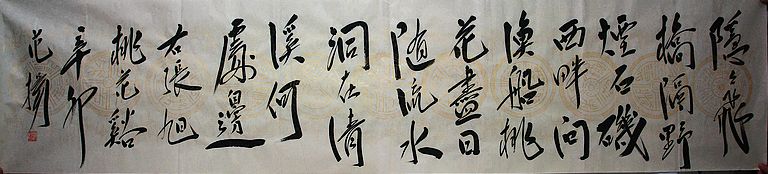 隱々飛
橋隔野
煙石磯
西畔问
漁船桃
花盡日
随流水
洞在清
溪何
處邊
右張旭
桃花谿
辛卯
范揚